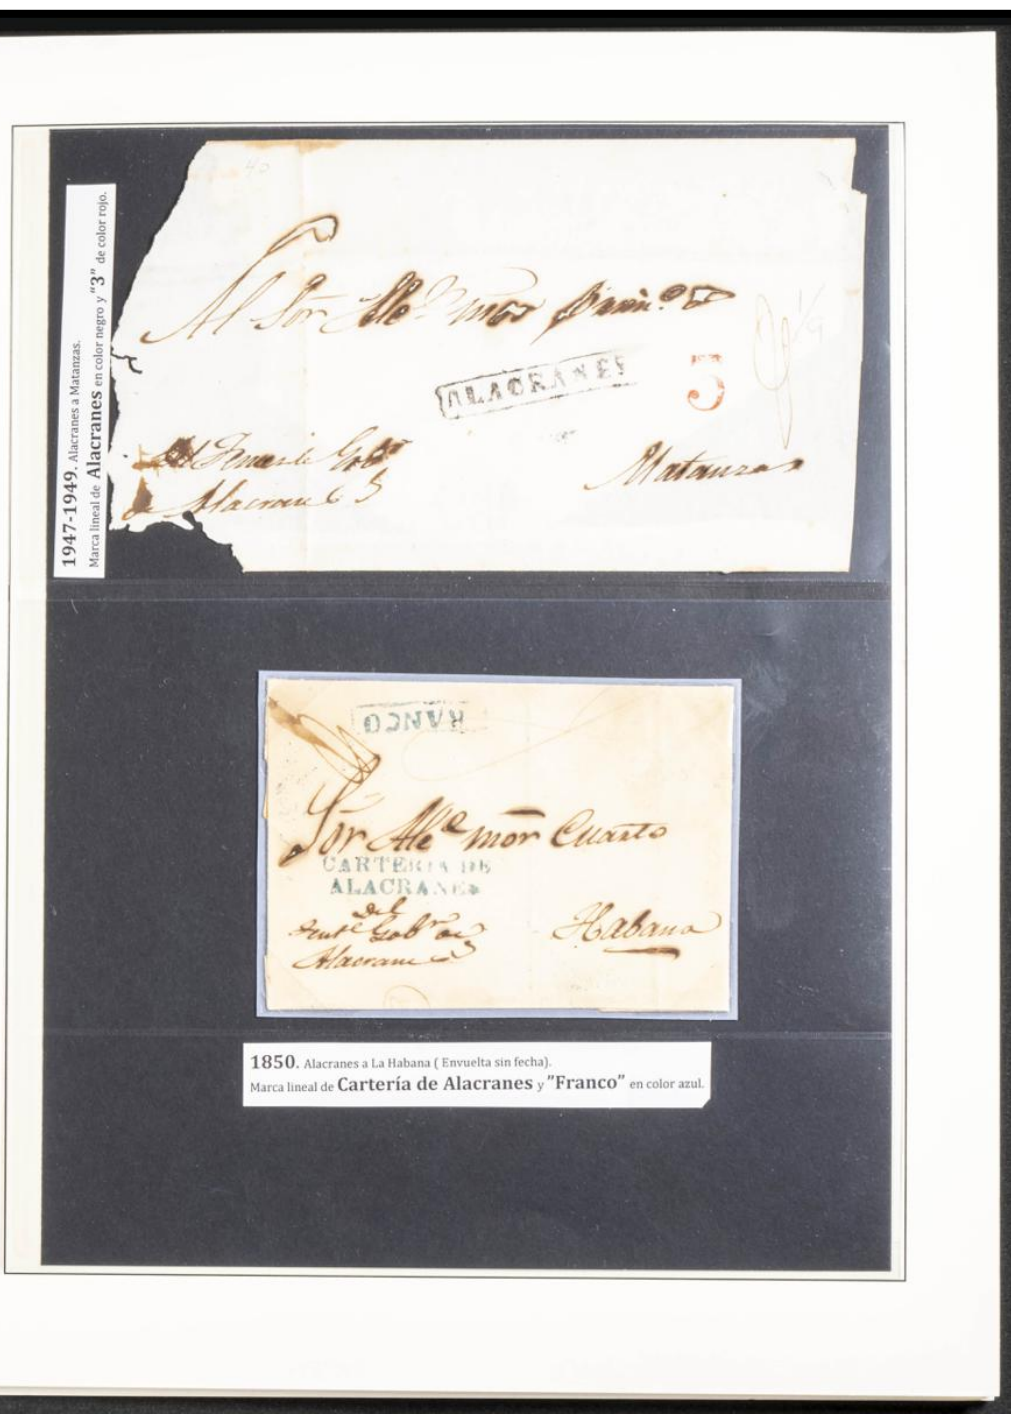 1947-1949. Alacranes a Matanzas.
Marca lineal de Alacranes en color negro y "3" de color rojo.
40
Al Sor Alce mor primo
ALACRANES
3
Gobor
de Alacranes
Matanzas
RANCO
Sor Alce mor Cuarto
CARTERIA DE
ALACRANES
Del
Tente Gobor de
Alacranes
Habana
1850. Alacranes a La Habana ( Envuelta sin fecha).
Marca lineal de Cartería de Alacranes y "Franco" en color azul.